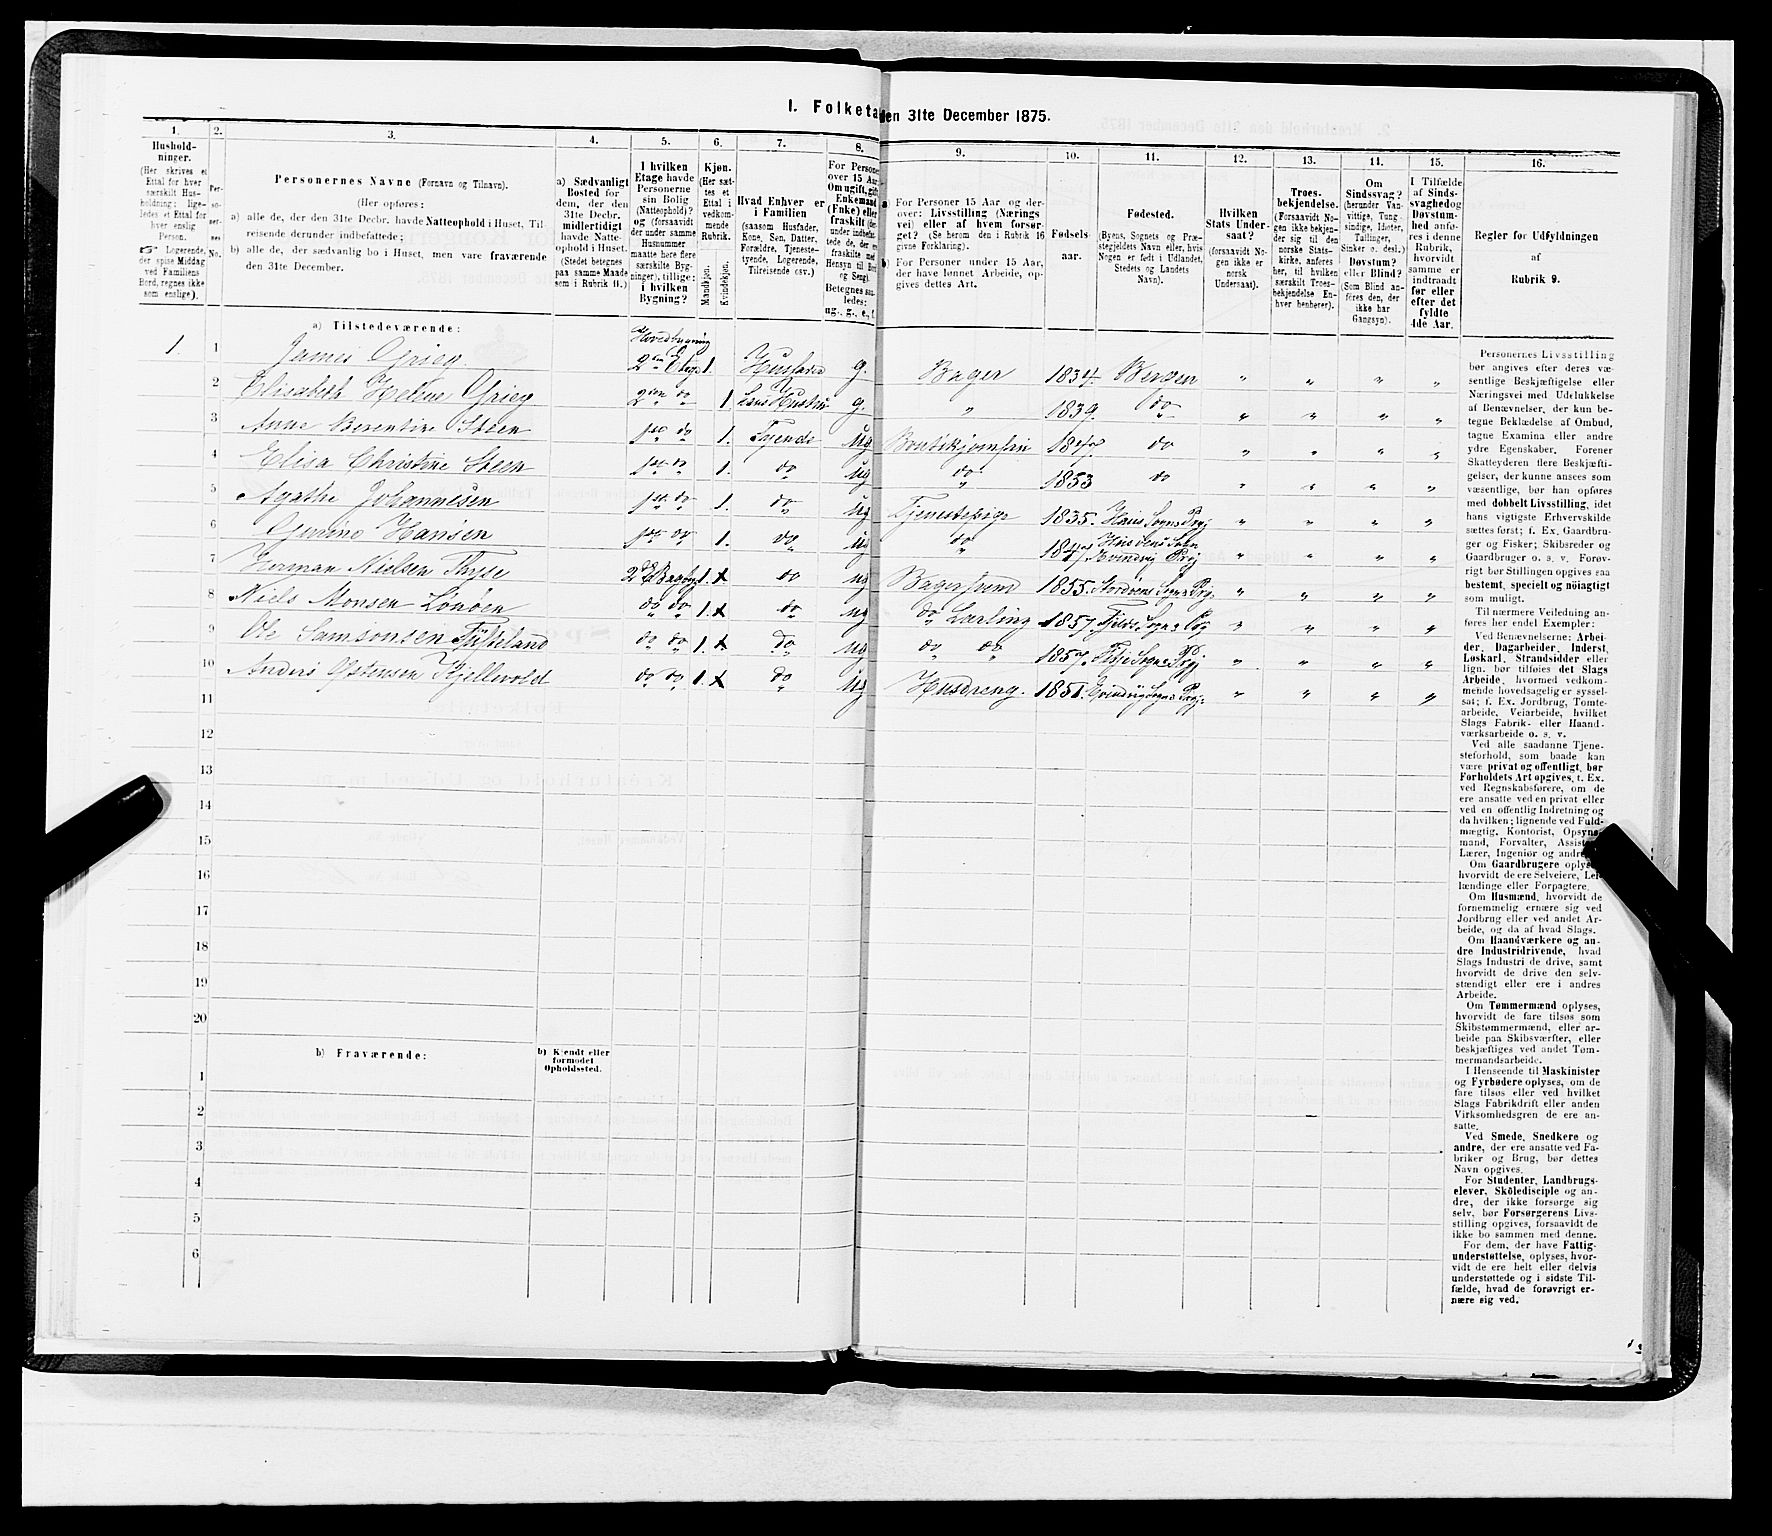 I. Folketa den 31te December 1875.
1. 2. 3. 4. 5. 6. 7. 8. 9. 10. 11. 12. 13. 14. 15. 16.
Hushold-
ninger.
(Her skrives et
Ettal for hver
særskilt Hus-
holdning; lige-
ledes et Ettal for
hver enslig
Person.
Logerende,
der spise Middag
ved Familiens
Bord, regnes ikke
som enslige).
Per-
so-
ner-
nes
No.
Personernes Navne (Fornavn og Tilnavn).
(Her opføres:
a) alle de, der den 31te Decbr. havde Natteophold i Huset, Til-
reisende derunder indbefattede;
b) alle de, der sædvanlig bo i Huset, men vare fraværende
den 31te December.
a) Sædvanligt
Bosted for
dem, der den
31te Decbr.
midlertidigt
havde Natte-
ophold i Huset.
(Stedet betegnes
paa samme Maade
som i Rubrik 11.)
I hvilken
Etage havde
Personerne
sin Bolig
(Natteophold)?
og (forsaavidt
der under samme
Husnummer
maatte høre flere
særskilte Byg-
ninger), tillige:
i hvilken
Bygning?
Kjøn.
(Her sæt-
tes et
Ettal i
vedkom-
mende
Rubrik.
Mandkjøn.
Kvindekjøn.
Hvad Enhver er
i Familien
(saasom Husfader,
Kone, Søn, Datter,
Forældre, Tjeneste-
tyende, Logerende,
Tilreisende osv.)
For Persone
over 15 Aar
Om ugift, gift
Enkemand
(Enke) eller
fraskilt (der
under indbefat-
tede de, der ere
fraskilte med
Hensyn til Bord
og Seng).
Betegnes saa-
ledes:
ug., g., e., f.
a For Personer 15 Aar og der-
over: Livsstilling (Nærings
vei) eller af hvem forsør-
get? (Se herom den i Rubrik 16
givne Forklaring).
b) For Personer under 15 Aar,
der have lønnet Arbeide, op-
gives dettes Art.
Fødsels-
aar.
Fødested.
(Byens, Sognets og Præ-
stegjeldets Navn eller, hvis
Nogen er født i Udlandet,
Stedets og Landets
Navn).
Hvilken
Stats Under-
saat?
(forsaavidt No-
gen ikke er
norsk
Undersaat).
Troes-
bekjendelse.
(Forsaavidt No-
gen ikke bekjen-
der sig til den
norske Stats-
kirke, anføres
her, til hvilken
særskilt Troes-
bekjendelse En-
hver henhører).
Om
Sindssvag?
(herunder Van-
vittige, Tung
sindige, Idioter,
Tullinger,
Sinker o. desl.)
Døvstum?
eller Blind?
(Som Blind an-
føres den, der
ikke har
Gangsyn).
I Tilfælde
af Sinds-
svaghedog
Døvstum-
hed anfø-
res i denne
Rubrik,
hvorvidt
samme er
indtraadt
før eller
efter det
fyldte
4de Aar.
Regler for Udfyldningen
af
Rubrik 9.
a) Tilstedeværende:
1. 1 James Grieg. Hovedbygning 2den Etage 1. Husfader g. Bager 1834. Bergen " " " "
2 Elisabeth Helene Grieg 2den do 1. hans Hustru g. " 1839. do " " " "
3 Anne Berentine Steen 1ste do 1. Tjende ug do " " " "
4 Elisa Christine Steen 1ste do 1. do ug do 1853 do " " " "
5 Agathe Johannesen 1ste do 1. do ug Tjenestepige 1835. Haus Sogn Prgj " " " "
6 Hansen 1ste do 1. do ug do 1847 " " " "
7 Herman Nielsen 1. do ug Bagersvend 1855. Sogn Prgj " " " "
8 Niels Monsen do do 1. do ug do Lærling 1857. Fjelds Sogn " " " "
9 Ole Samsonsen do do 1. do ug do do 1857. Sogn Prgj " " " "
10 Anders Østensen Kjellevold do do 1. do ug Husdreng. 1851. Evindvig Sogns Prgj. " " " "
11
12
13
14
15
16
17
18
19
20
b) Fraværende:
b) Kjendt eller
formodet
Opholdssted.
1
2
3
4
5
6
Personernes Livsstilling
bør angives efter deres væ-
sentlige Beskjæftigelse eller
Næringsvei med Udelukkelse
af Benævnelser, der kun be-
tegne Beklædelse af Ombud,
tagne Examina eller andre
ydre Egenskaber. Forener
Skatteyderen flere Beskjæfti-
gelser, der kunne ansees som
væsentlige, bør han opføres
med dobbelt Livsstilling, idet
hans vigtigste Erhvervskilde
sættes først; f. Ex. Gaardbru-
ger og Fisker; Skibsreder og
Gaardbruger o. s. v. Forøv-
rigt bør Stillingen opgives saa
bestemt, specielt og nøiagtigt
som muligt.
Til nærmere Veiledning an-
føres her endel Exempler:
Ved Benævnelserne: Arbei-
der, Dagarbeider, Inderst,
Løskarl, Strandsidder eller
lign. bør tilføies det Slags
Arbeide, hvormed vedkom-
mende hovedsagelig er syssel-
sat; f. Ex. Jordbrug, Tomte-
arbeide, Veiarbeide, hvilket
Slags Fabrik- eller Haand-
værksarbeide o. s. v.
Ved alle saadanne Tjene-
steforhold, som baade kan
være privat og offentligt, bør
Forholdets Art opgives, t. Ex.
ved Regnskabsførere, om de
ere ansatte ved en privat eller
ved en offentlig Indretning og
da hvilken; lignende ved Fuld-
mægtig, Kontorist, Opsyns-
mand, Forvalter, Assist
Lærer, Ingeniør og andre
Om Gaardbrugere oplys
hvorvidt de ere Selveiere, Lei-
lændinge eller Forpagtere.
Om Husmænd, hvorvidt de
fornemmelig ernære sig ved
Jordbrug eller ved andet Ar-
beide, og da af hvad Slags.
Om Haandværkere og an-
dre Industridrivende, hvad
Slags Industri de drive, samt
hvorvidt de drive den selv-
stændigt eller ere i andres
Arbeide.
Om Tømmermænd oplyses,
hvorvidt de fare tilsøs som
Skibstømmermænd, eller ar-
beide paa Skibsværfter, eller
beskjæftiges ved andet Tøm-
mermandsarbeide.
I Henseende til Maskinister
og Fyrbødere oplyses, om de
fare tilsøs eller ved hvilket
Slags Fabrikdrift eller anden
Virksomhedsgren de ere an-
satte.
Ved Smede, Snedkere og
andre, der ere ansatte ved Fa-
briker og Brug, bør dettes
Navn opgives.
For Studenter, Landbrugs-
elever, Skoledisciple og an-
dre, der ikke forsørge sig
selv, bør Forsørgerens Livs-
stilling opgives, forsaavidt de
ikke bo sammen med denne.
For dem, der have Fattig-
understøttelse, oplyses, hvor-
vidt de ere helt eller delvis
understøttede og i sidste Til-
fælde, hvad de forøvrigt er-
nære sig ved.